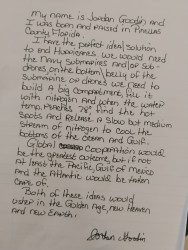 My name is Jordan Goodin and
I was born and raised in Pinellas
County Florida.
I have the perfect idea/solution
to end Hurricanes. We would need
the Navy submarines and/or sub-
drones, on the bottom/belly of the
submarine or drones we need to
build a big compartment, fill it
with nitrogen and when the water
temp reaches 78°, find the hot
spots and Release a slow but medium
stream of nitrogen to cool the
bottoms of the Ocean and Gulf.
Global cooperation would
be the greatest outcome, but if not
at least the Pacific, Gulf of Mexico
and the Atlantic would be taken
care of.
Both of these ideas would
usher in the Golden Age, new Heaven
and new Earth.
Jordan Goodin